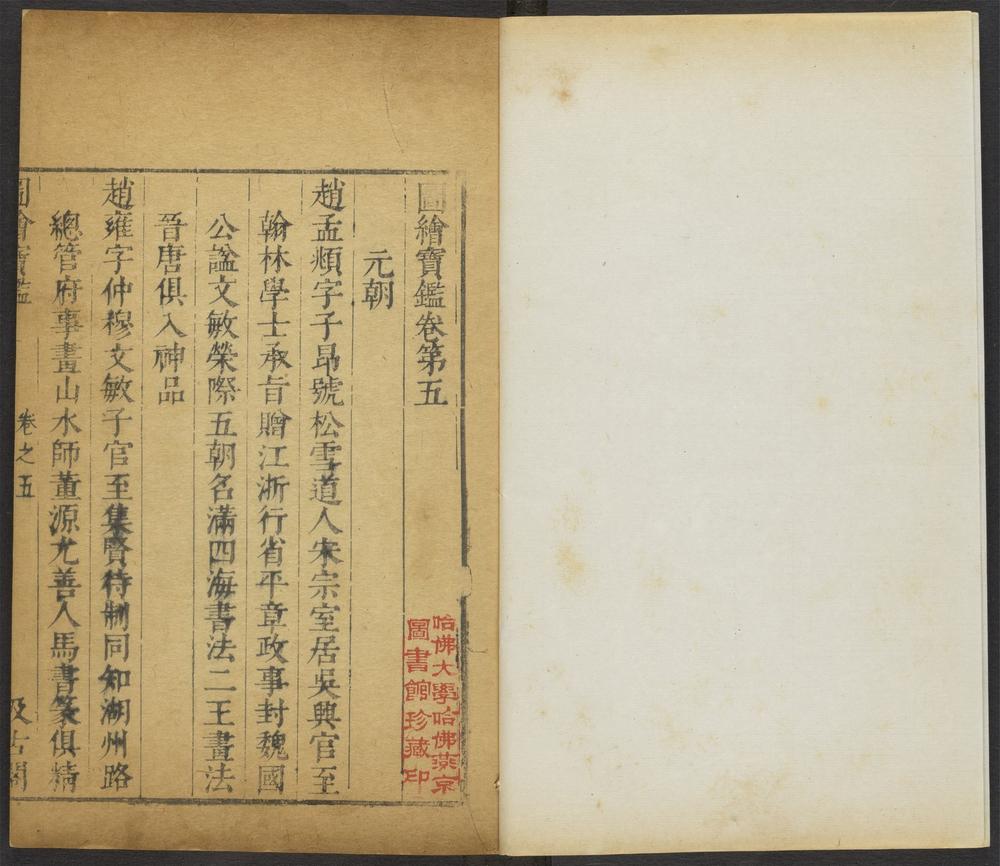 圖繪寶鑑卷第五
元朝
趙孟頫字子昻號松雪道人宋宗室居吳興官至
翰林學士承旨贈江浙行省平章政事封魏國
公諡文敏榮際五朝名滿四海書法二王畫法
晉唐俱入神品
趙雍字仲穆文敏子官至集賢待制同知湖州路
總管府事畫山水師董源尤善人馬書篆俱精
圖繪寶鑑
卷之五
汲古閣
哈佛大學哈佛燕京
圖書館珍藏印